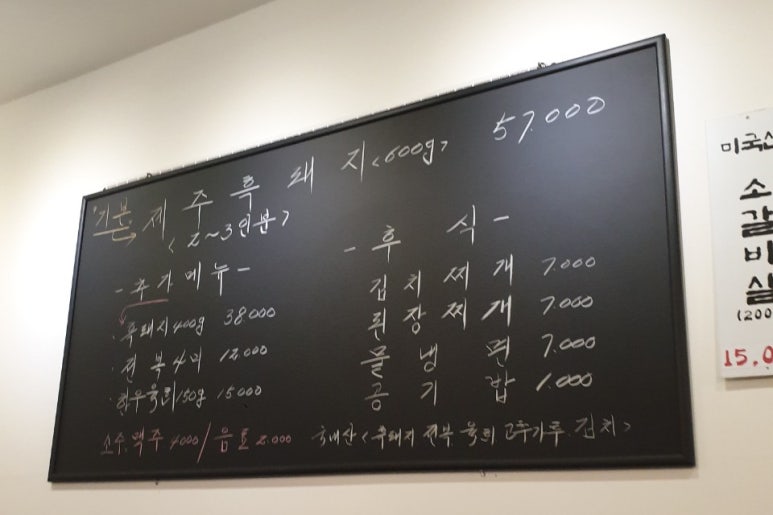 기본 제주흑돼지<600g> 57.000
<2~3인분>
-추가메뉴-
·흑돼지400g 38.000
·전복4미 12.000
·한우육회150g 15000
-후식-
김치찌개 7.000
된장찌개 7.000
물냉면 7.000
공기밥 1.000
소주,맥주 4000/음료 2.000
국내산<흑돼지 전복 육회 고추가루.김치>
미국산
소
갈
비
살
(200
15.0